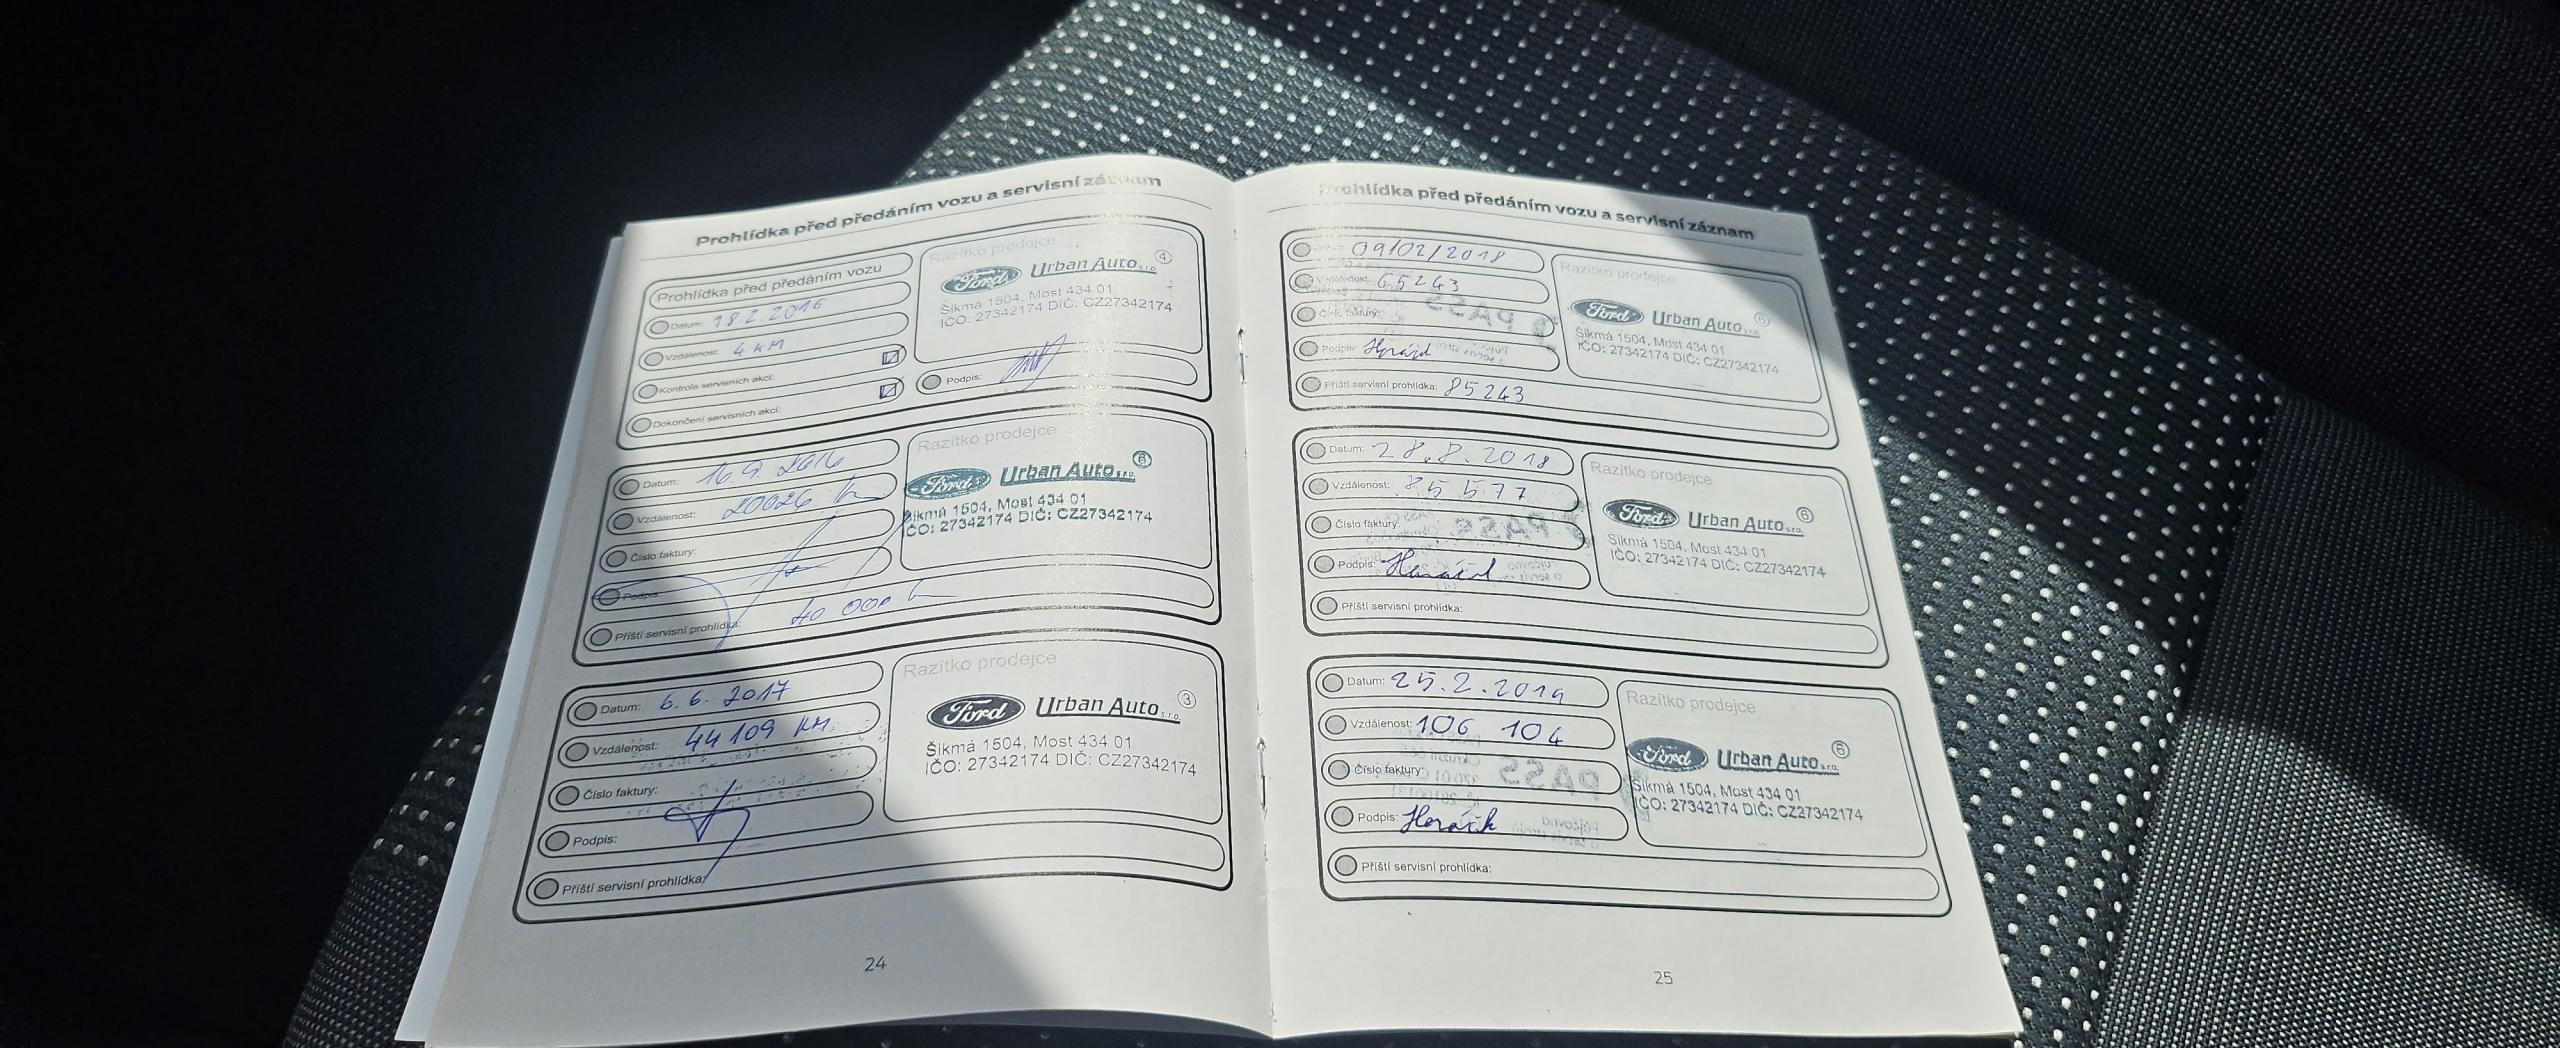 Prohlídka před předáním vozu a servisní záznam
Prohlídka před předáním vozu
Datum: 18.2.2016
Vzdálenost: 4 KM
Kontrola servisních akcí:
Dokončení servisních akcí:
Razítko prodejce
4
Ford Urban Auto s.r.o.
Šikmá 1504, Most 434 01
IČO: 27342174 DIČ: CZ27342174
Podpis:
Datum: 16.9.2016
Vzdálenost: 20026 km
Číslo faktury:
Podpis:
Příští servisní prohlídka: 40 000 km
Razítko prodejce
6
Ford Urban Auto s.r.o.
Šikmá 1504, Most 434 01
IČO: 27342174 DIČ: CZ27342174
Datum: 6.6.2017
Vzdálenost: 44 109 KM
Číslo faktury:
Podpis:
Příští servisní prohlídka:
Razítko prodejce
3
Ford Urban Auto s.r.o.
Šikmá 1504, Most 434 01
IČO: 27342174 DIČ: CZ27342174
24
Prohlídka před předáním vozu a servisní záznam
09/02/2018
Vzdálenost: 65243
Číslo faktury:
Podpis:
Příští servisní prohlídka: 85243
Razítko prodejce
6
Ford Urban Auto s.r.o.
Šikmá 1504, Most 434 01
IČO: 27342174 DIČ: CZ27342174
Datum: 28.8.2018
Vzdálenost: 85 577
Číslo faktury:
Podpis:
Příští servisní prohlídka:
Razítko prodejce
6
Ford Urban Auto s.r.o.
Šikmá 1504, Most 434 01
IČO: 27342174 DIČ: CZ27342174
Datum: 25.2.2019
Vzdálenost: 106 104
Číslo faktury:
Podpis:
Příští servisní prohlídka:
Razítko prodejce
6
Ford Urban Auto s.r.o.
Šikmá 1504, Most 434 01
IČO: 27342174 DIČ: CZ27342174
25